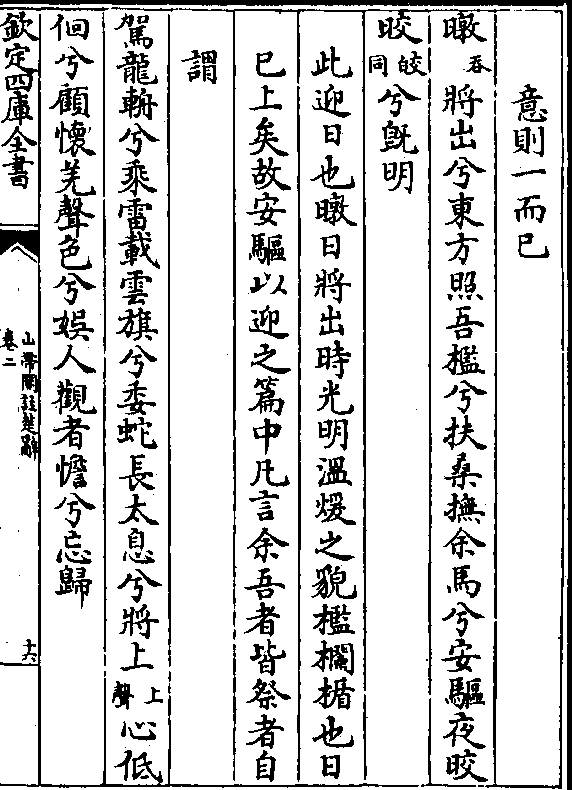 意則一而已
暾吞將出兮東方照吾檻兮扶桑撫余馬兮安驅夜晈
晈皎同兮旣明
此迎日也暾日將出時光明溫煖之貌檻欄楯也日
已上矣故安驅以迎之篇中凡言余吾者皆祭者自
謂
駕龍輈兮乘雷載雲旗兮委蛇長太息兮將上上聲心低
佪兮顧懷羌聲色兮娛人觀者憺兮忘歸
欽定四庫全書
山帶閣註楚辭
卷二
十六